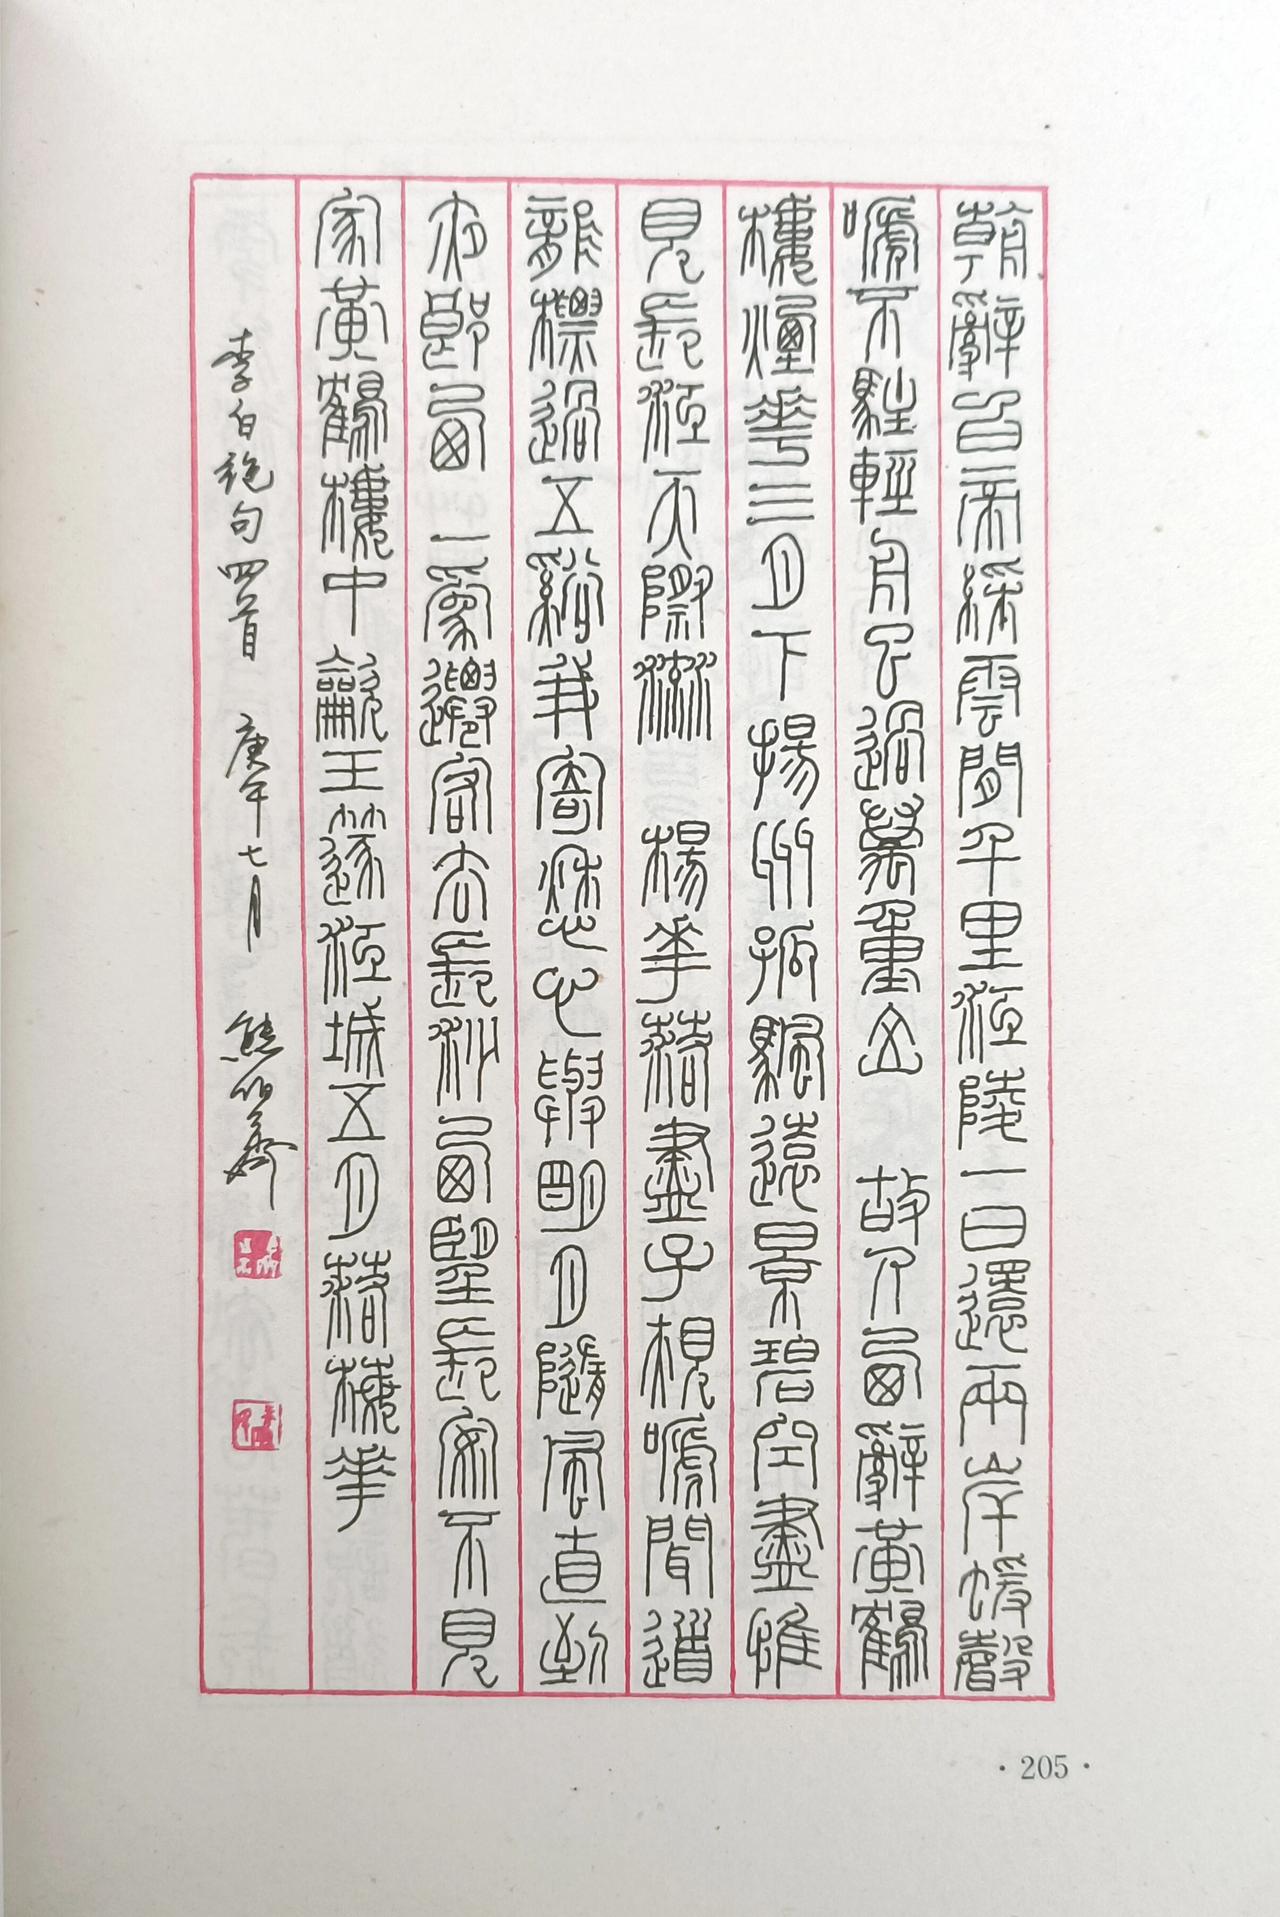 朝辭白帝綵雲間千里江陵一日還兩岸蝯聲
嗁不駐輕舟已過萬重山 故人西辭黃鶴
樓煙華三月下揚州孤颿遠景碧空盡惟
見長江天際流 楊華落盡子規嗁聞道
龍標過五谿我寄愁心與明月隨風直到
夜郎西 一爲遷客去長沙西望長安不見
家黃鶴樓中龡玉篴江城五月落梅華
李白絕句四首 庚午七月 熊伯齊
·205·